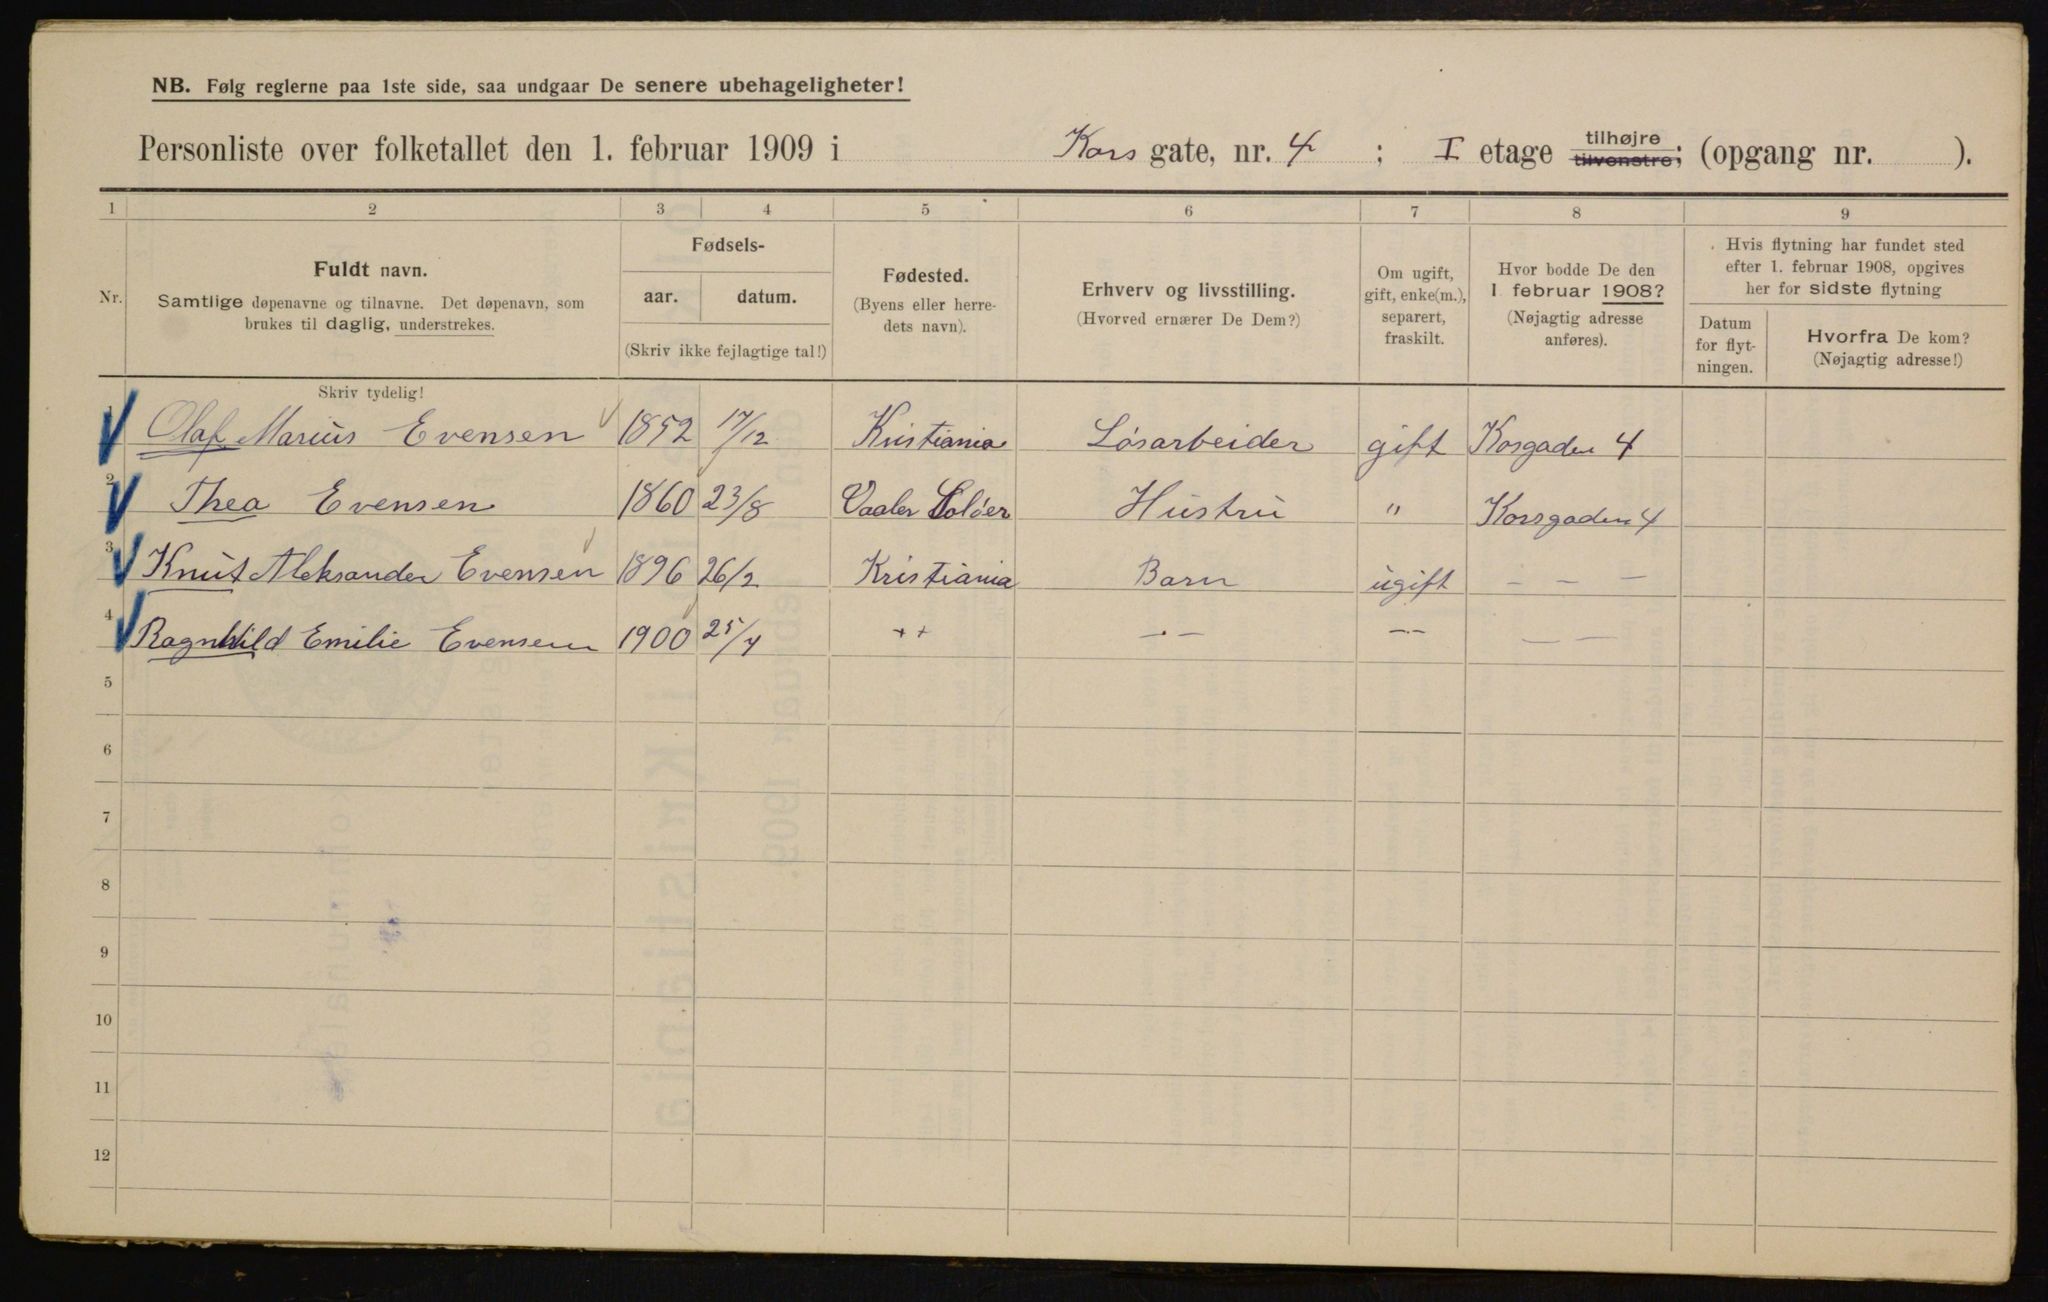 NB. Følg reglerne paa 1ste side, saa undgaar De senere ubehageligheter!
Personliste over folketallet den 1. februar 1909 i Kors gate, nr. 4 ; I etage tilhøjre tilvenstre; (opgang nr. ).
1 2 3 4 5 6 7 8 9
Nr. Fuldt navn. Samtlige døpenavne og tilnavne. Det døpenavn, som brukes til daglig, understrekes.
Fødsels- aar. datum. (Skriv ikke fejlagtige tal!)
Fødested. (Byens eller herredets navn).
Erhverv og livsstilling. (Hvorved ernærer De Dem?)
Om ugift, gift, enke(m.), separert, fraskilt.
Hvor bodde De den 1. februar 1908? (Nøjagtig adresse anføres).
Hvis flytning har fundet sted efter 1. februar 1908, opgives her for sidste flytning
Datum for flytningen.
Hvorfra De kom? (Nøjagtig adresse!)
Skriv tydelig!
1 Olaf Marius Evensen 1852 17/12 Kristiania Løsarbeider gift Korsgaden 4
2 Thea Evensen 1860 23/8 Vaaler Soløer Hustru " Korsgaden 4
3 Knut Aleksander Evensen 1896 26/2 Kristiania Barn ugift — — —
4 Ragnhild Emilie Evensen 1900 25/4 " — — — — —
5
6
7
8
9
10
11
12